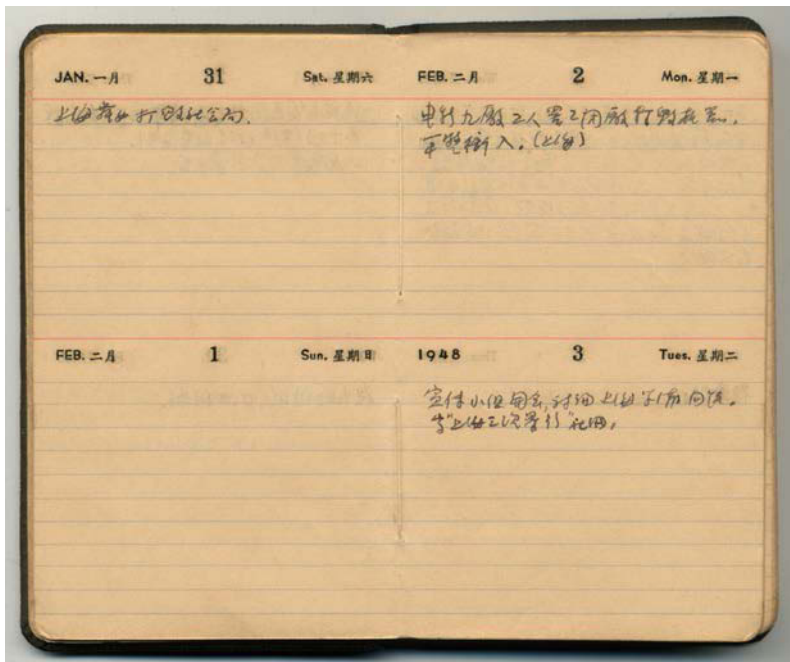 JAN. 一月 31 Sat. 星期六
上海舞女打毁社会局.
FEB. 二月 1 Sun. 星期日
FEB. 二月 2 Mon. 星期一
申新九厰工人罢工闭厰打毁机器.
军警衝入. (上海)
1948 3 Tues. 星期二
小组开会, 讨论上海
"上海三次暴行"社论.